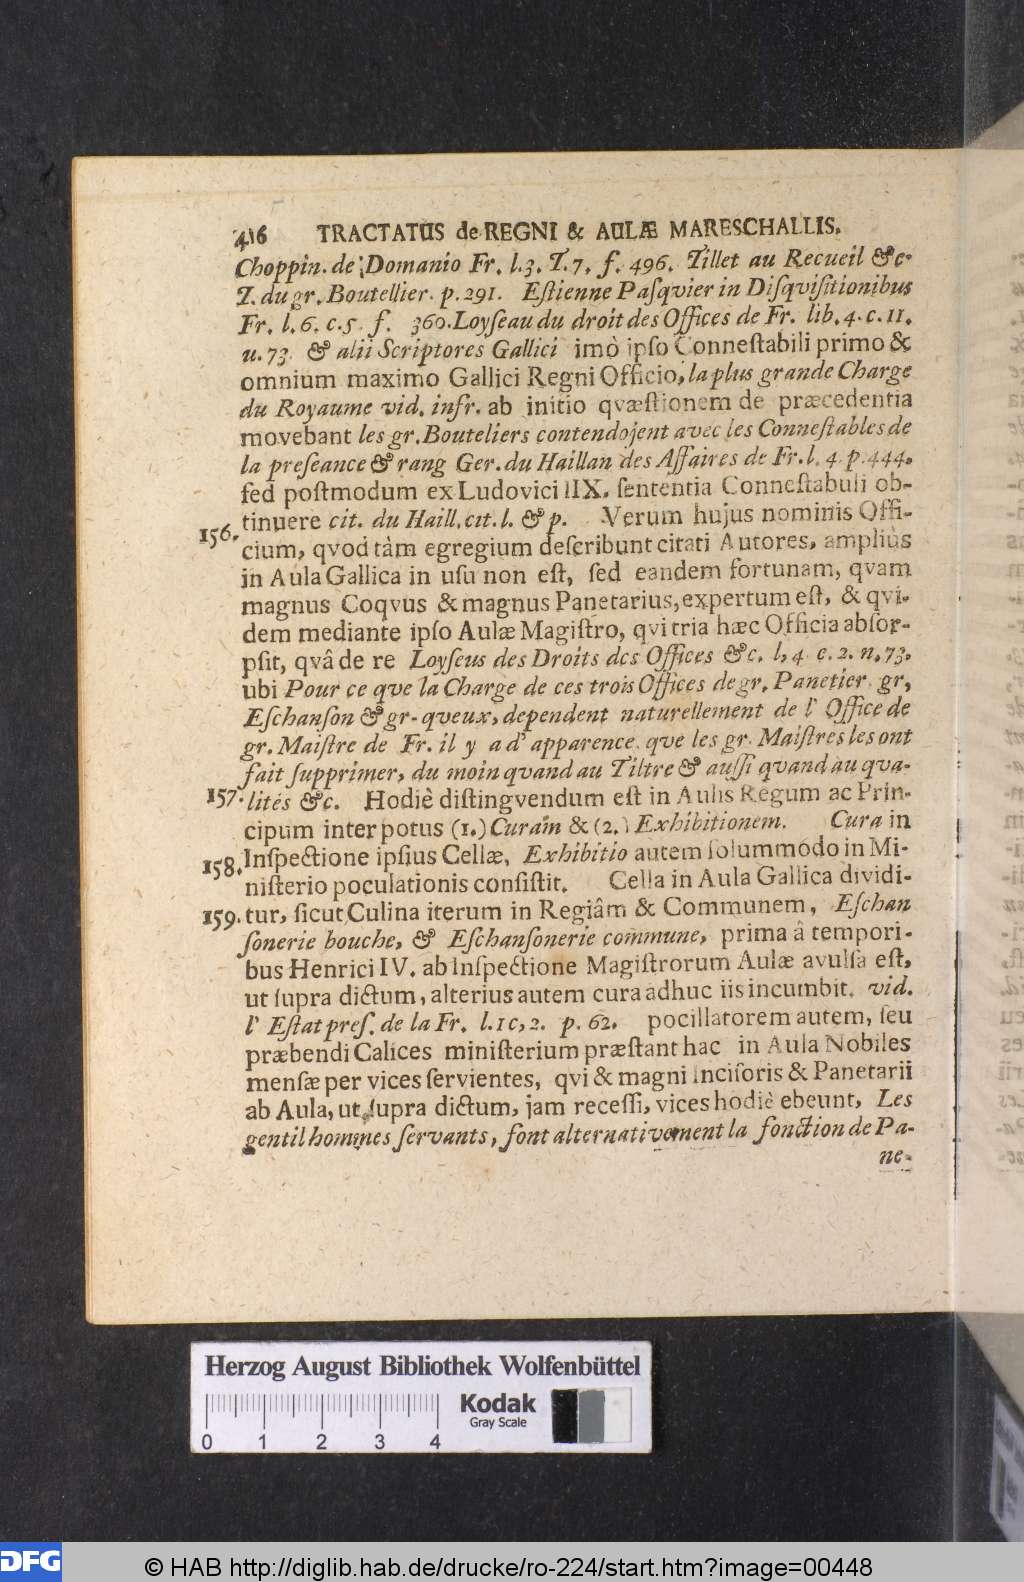 416 TRACTATUS de REGNI & AULÆ MARESCHALLIS.
Choppin. de Domanio Fr. l.3. T.7. f. 496. Tillet au Recueil &c.
T. du gr. Boutellier. p. 291. Eſtienne Paſqvier in Diſqviſitionibus
Fr. l. 6. c. 5. f. 360. Loyſeau du droit des Offices de Fr. lib. 4. c. 11.
u. 73. & alii Scriptores Gallici imò ipſo Conneſtabili primo &
omnium maximo Gallici Regni Officio, la plus grande Charge
du Royaume vid. infr. ab initio qvæſtionem de præcedentia
movebant les gr. Bouteliers contendojent avec les Conneſtables de
la preſeance & rang Ger. du Haillan des Affaires de Fr. l. 4. p. 444.
ſed poſtmodum ex Ludovici IIX. ſententia Conneſtabuli ob-
tinuere cit. du Haill. cit. l. & p. Verum hujus nominis Offi-
156. cium, qvod tàm egregium deſcribunt citati Autores, ampliùs
in Aula Gallica in uſu non eſt, ſed eandem fortunam, qvam
magnus Coqvus & magnus Panetarius, expertum eſt, & qvi-
dem mediante ipſo Aulæ Magiſtro, qvi tria hæc Officia abſor-
pſit, qvâ de re Loyſeus des Droits des Offices &c. l. 4. c. 2. n. 73.
ubi Pour ce qve la Charge de ces trois Offices de gr. Panetier. gr,
Eſchanſon & gr-qveux, dependent naturellement de l' Office de
gr. Maiſtre de Fr. il y a d' apparence. que les gr. Maiſtres les ont
fait ſupprimer, du moin qvand au Tiltre & auſſi qvand au qva-
157. lités &c. Hodiè diſtingvendum eſt in Aulis Regum ac Prin-
cipum inter potus (1.) Curam & (2.) Exhibitionem. Cura in
158. Inſpectione ipſius Cellæ, Exhibitio autem ſolummodo in Mi-
niſterio poculationis conſiſtit. Cella in Aula Gallica dividi-
159. tur, ſicut Culina iterum in Regiâm & Communem, Eſchan
ſonerie bouche, & Eſchanſonerie commune, prima â tempori-
bus Henrici IV. ab Inſpectione Magiſtrorum Aulæ avulſa eſt,
ut ſupra dictum, alterius autem cura adhuc iis incumbit. vid.
l' Eſtat preſ. de la Fr. l. 1 c, 2. p. 62. pocillatorem autem, ſeu
præbendi Calices miniſterium præſtant hac in Aula Nobiles
menſæ per vices ſervientes, qvi & magni inciſoris & Panetarii
ab Aula, ut ſupra dictum, jam receſſi, vices hodiè ebeunt, Les
gentilhommes ſervants, font alternativement la fonction de Pa-
ne-
Herzog August Bibliothek Wolfenbüttel
Kodak
Gray Scale
0 1 2 3 4
DFG
© HAB http://diglib.hab.de/drucke/ro-224/start.htm?image=00448